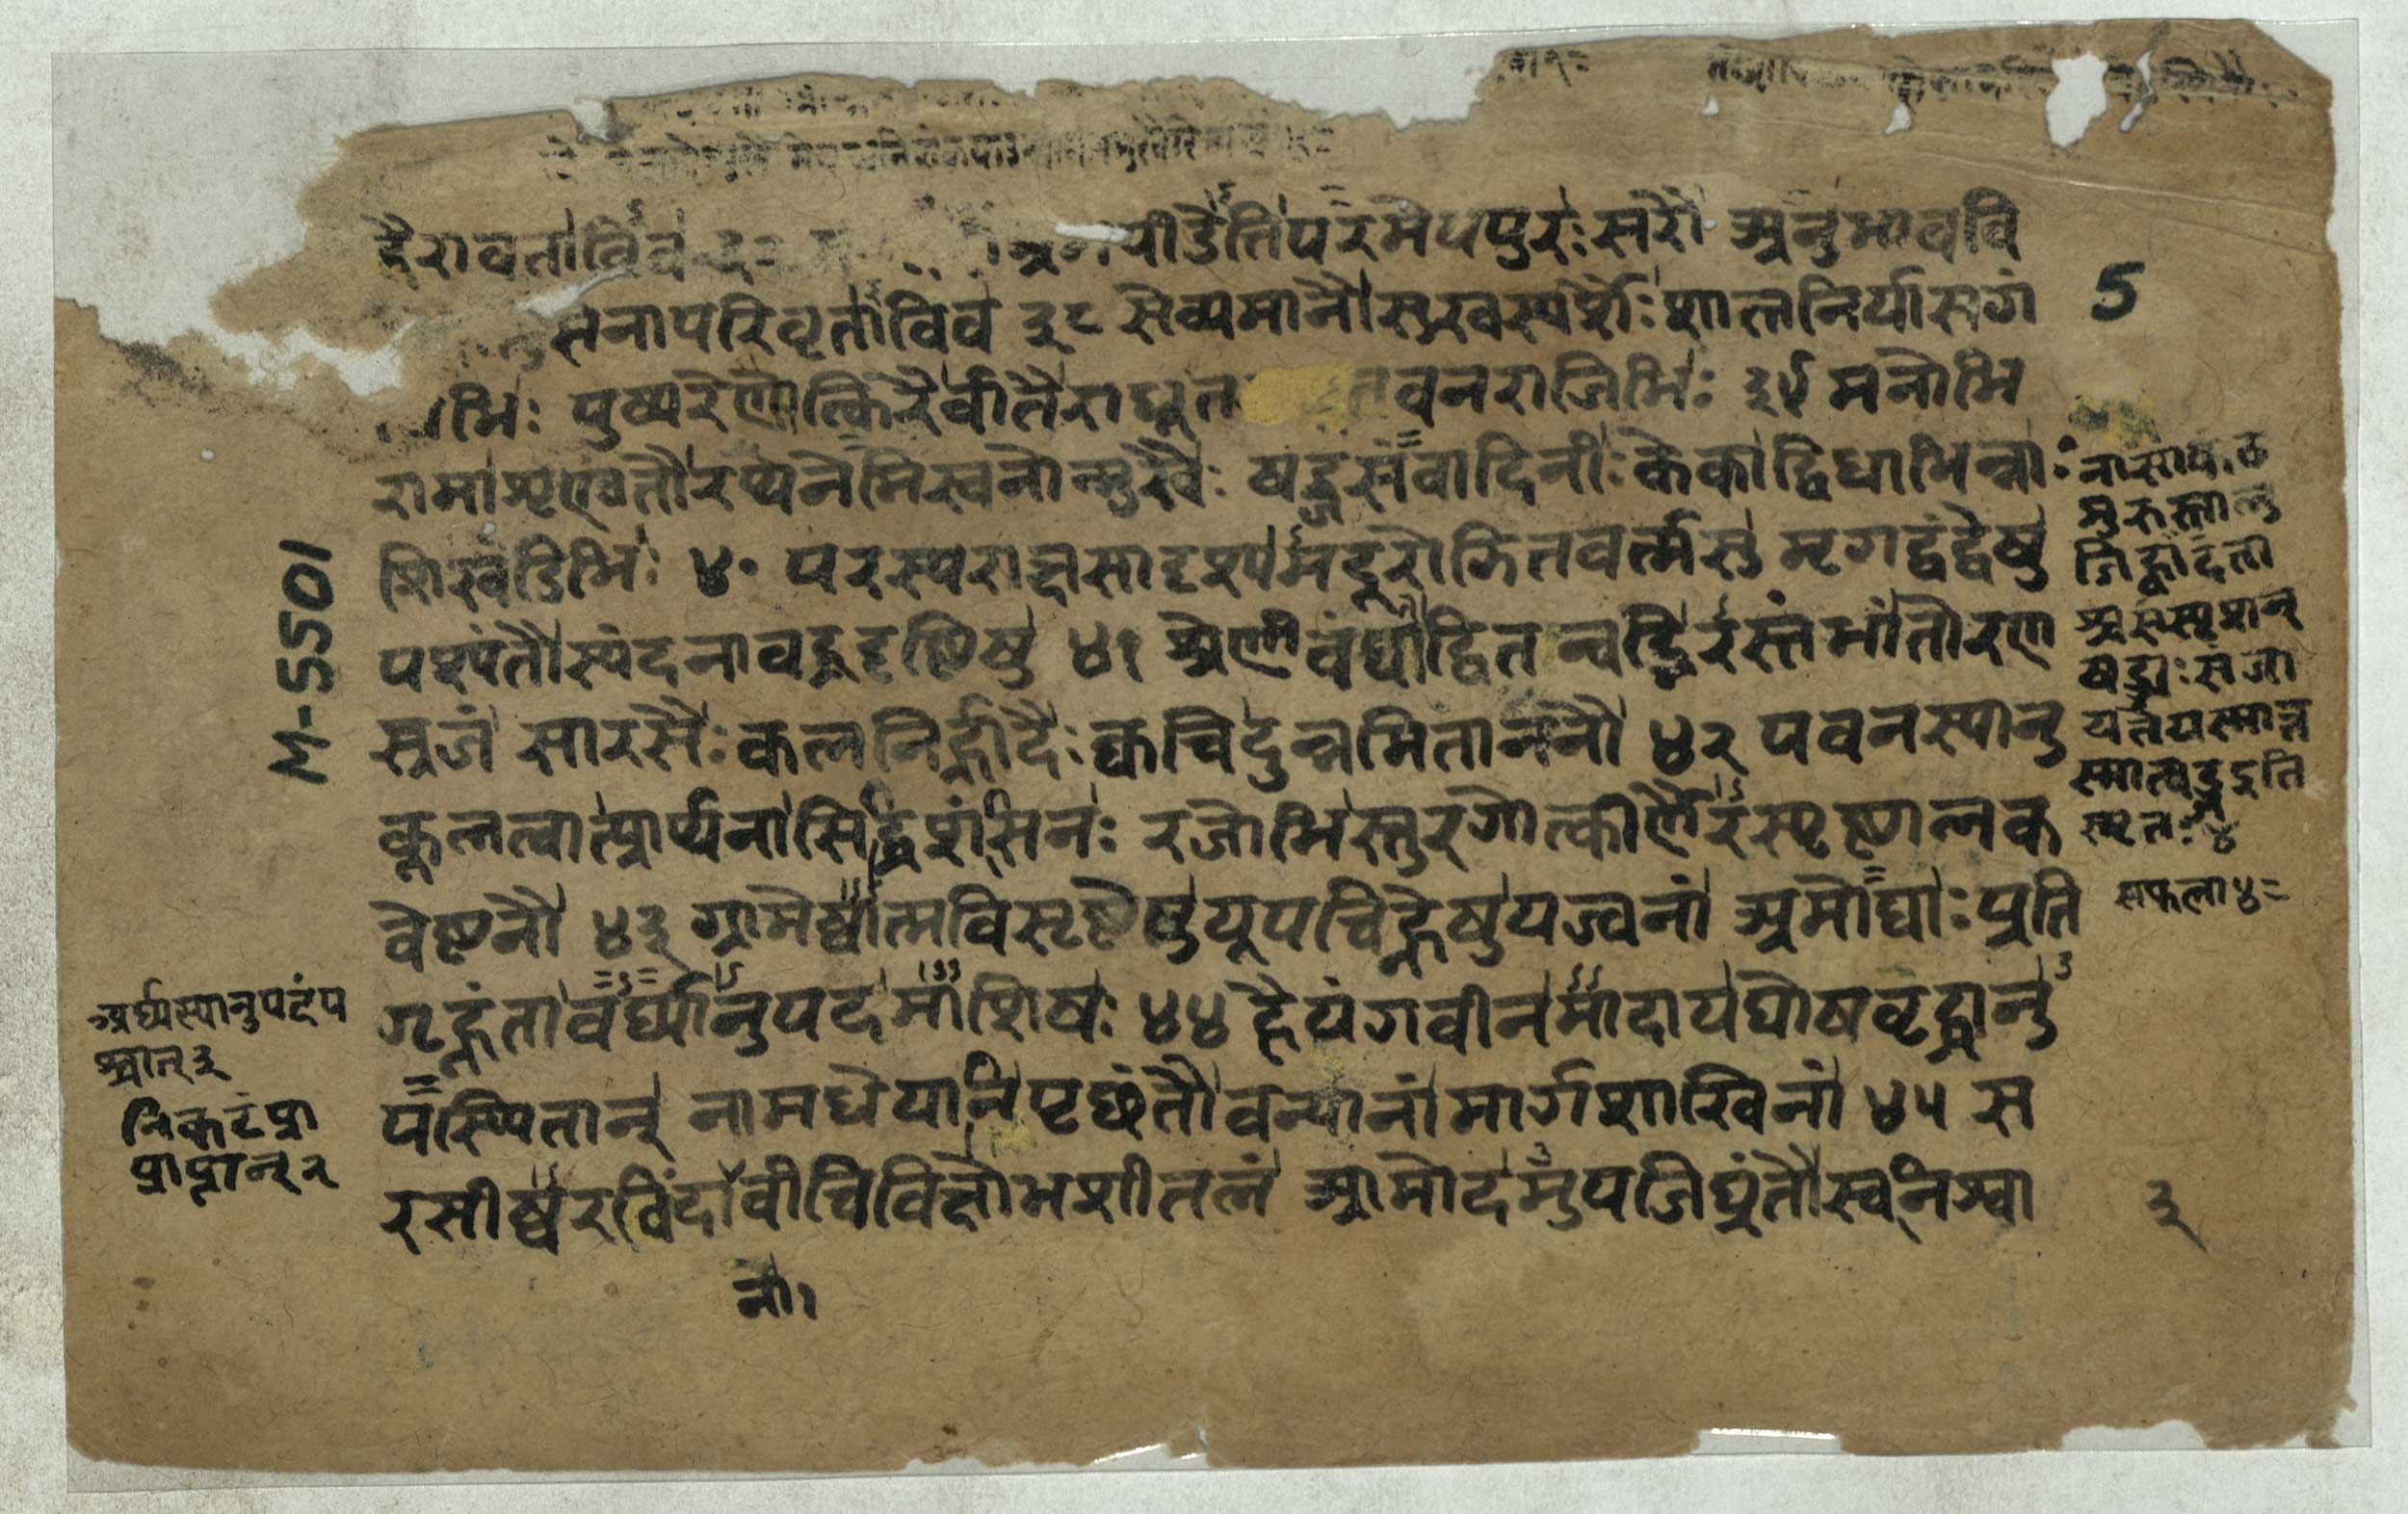 दैरावताविव
यीडेतिपरमेपपुरःसरौ अनुभाववि
तनापरिवृताविव ३८ सेव्यमानौसुखस्पर्शैः शालनिर्यासगं
भिः पुष्परेणोत्किरैर्वातैराधूत वनराजिभिः ३९ मनोभि
रामाशृण्वंतौरथनेमिस्वनोन्मुखैः षड्जसंवादिनीः केकाद्विधाभिन्नाः
शिखंडिभिः ४० परस्पराक्षसादृश्यमदूरोझितवर्त्मसु मृगद्वंद्वेषु
पश्यंतौस्यंदनाबद्धदृष्टिषु ४१ श्रेणीबंधाद्वितन्वद्भिरस्तंभांतोरण
स्रजं सारसैः कलनिर्ह्रादैः क्वचिदुन्नमिताननौ ४२ पवनस्यानु
कूलत्वात्प्रार्थनासिद्धिशंसिनः रजोभिस्तुरगोत्कीर्णैरस्पृष्टालक
वेष्टनौ ४३ ग्रामेष्वात्मविसृष्टेषुयूपचिह्नेषुयज्वनां अमोघाः प्रति
गृह्णंतावर्घ्यानुपदमाशिषः ४४ हैयंगवीनमादायघोषवृद्धानु
पस्थितान् नामधेयानिपृछंतौवन्यानांमार्गशाखिनां ४५ स
रसीष्वरविंदांवीचिविक्षोभशीतलं आमोदमुपजिघ्रंतौस्वनिश्वा
नां
5
M-5501
नासाकंठ
मुरस्तालु
जिह्वादंता
श्रसंस्पृशन्
षड्भ्यः संजा
यतेयस्मात्त
स्मात्षड्जइति
स्मृतः ४
सफला ४=
अर्घ्यस्यानुपदंप
श्चात् ३
निकटंप्रा
प्राप्तान् २
३